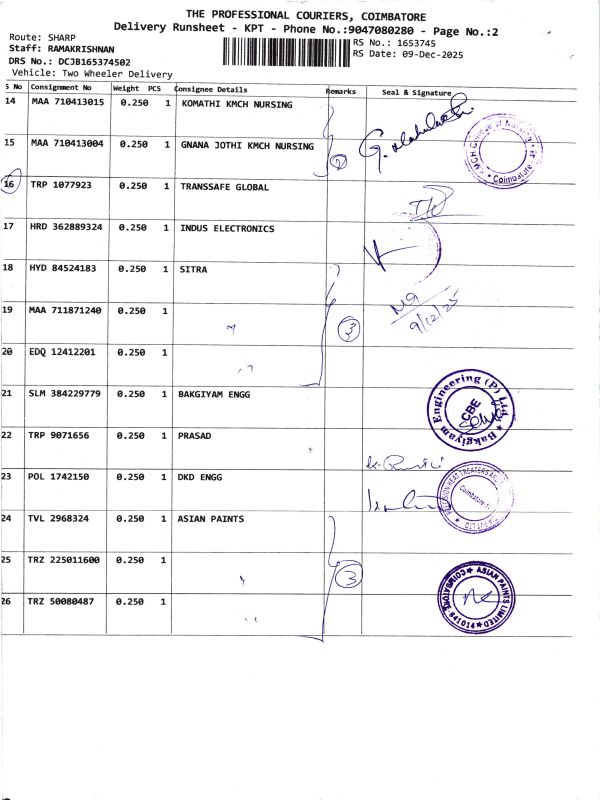 THE PROFESSIONAL COURIERS, COIMBATORE
Delivery Runsheet - KPT - Phone No.:9047080280 - Page No.:2
Route: SHARP
RS No.: 1653745
Staff: RAMAKRISHNAN
RS Date: 09-Dec-2025
DRS No.: DCJB165374502
Vehicle: Two Wheeler Delivery
S No Consignment No Weight PCS Consignee Details Remarks Seal & Signature
14 MAA 710413015 0.250 1 KOMATHI KMCH NURSING
15 MAA 710413004 0.250 1 GNANA JOTHI KMCH NURSING 2
16 TRP 1077923 0.250 1 TRANSSAFE GLOBAL
17 HRD 362889324 0.250 1 INDUS ELECTRONICS
18 HYD 84524183 0.250 1 SITRA
19 MAA 711871240 0.250 1 " 3
9/12/25
20 EDQ 12412201 0.250 1 "
21 SLM 384229779 0.250 1 BAKGIYAM ENGG
Bakgiyam Engineering (P) Ltd. CBE
22 TRP 9071656 0.250 1 PRASAD
23 POL 1742150 0.250 1 DKD ENGG
24 TVL 2968324 0.250 1 ASIAN PAINTS
25 TRZ 225011600 0.250 1 " 3
26 TRZ 50080487 0.250 1 "
ASIAN PAINTS LIMITED COIMBATORE 641014